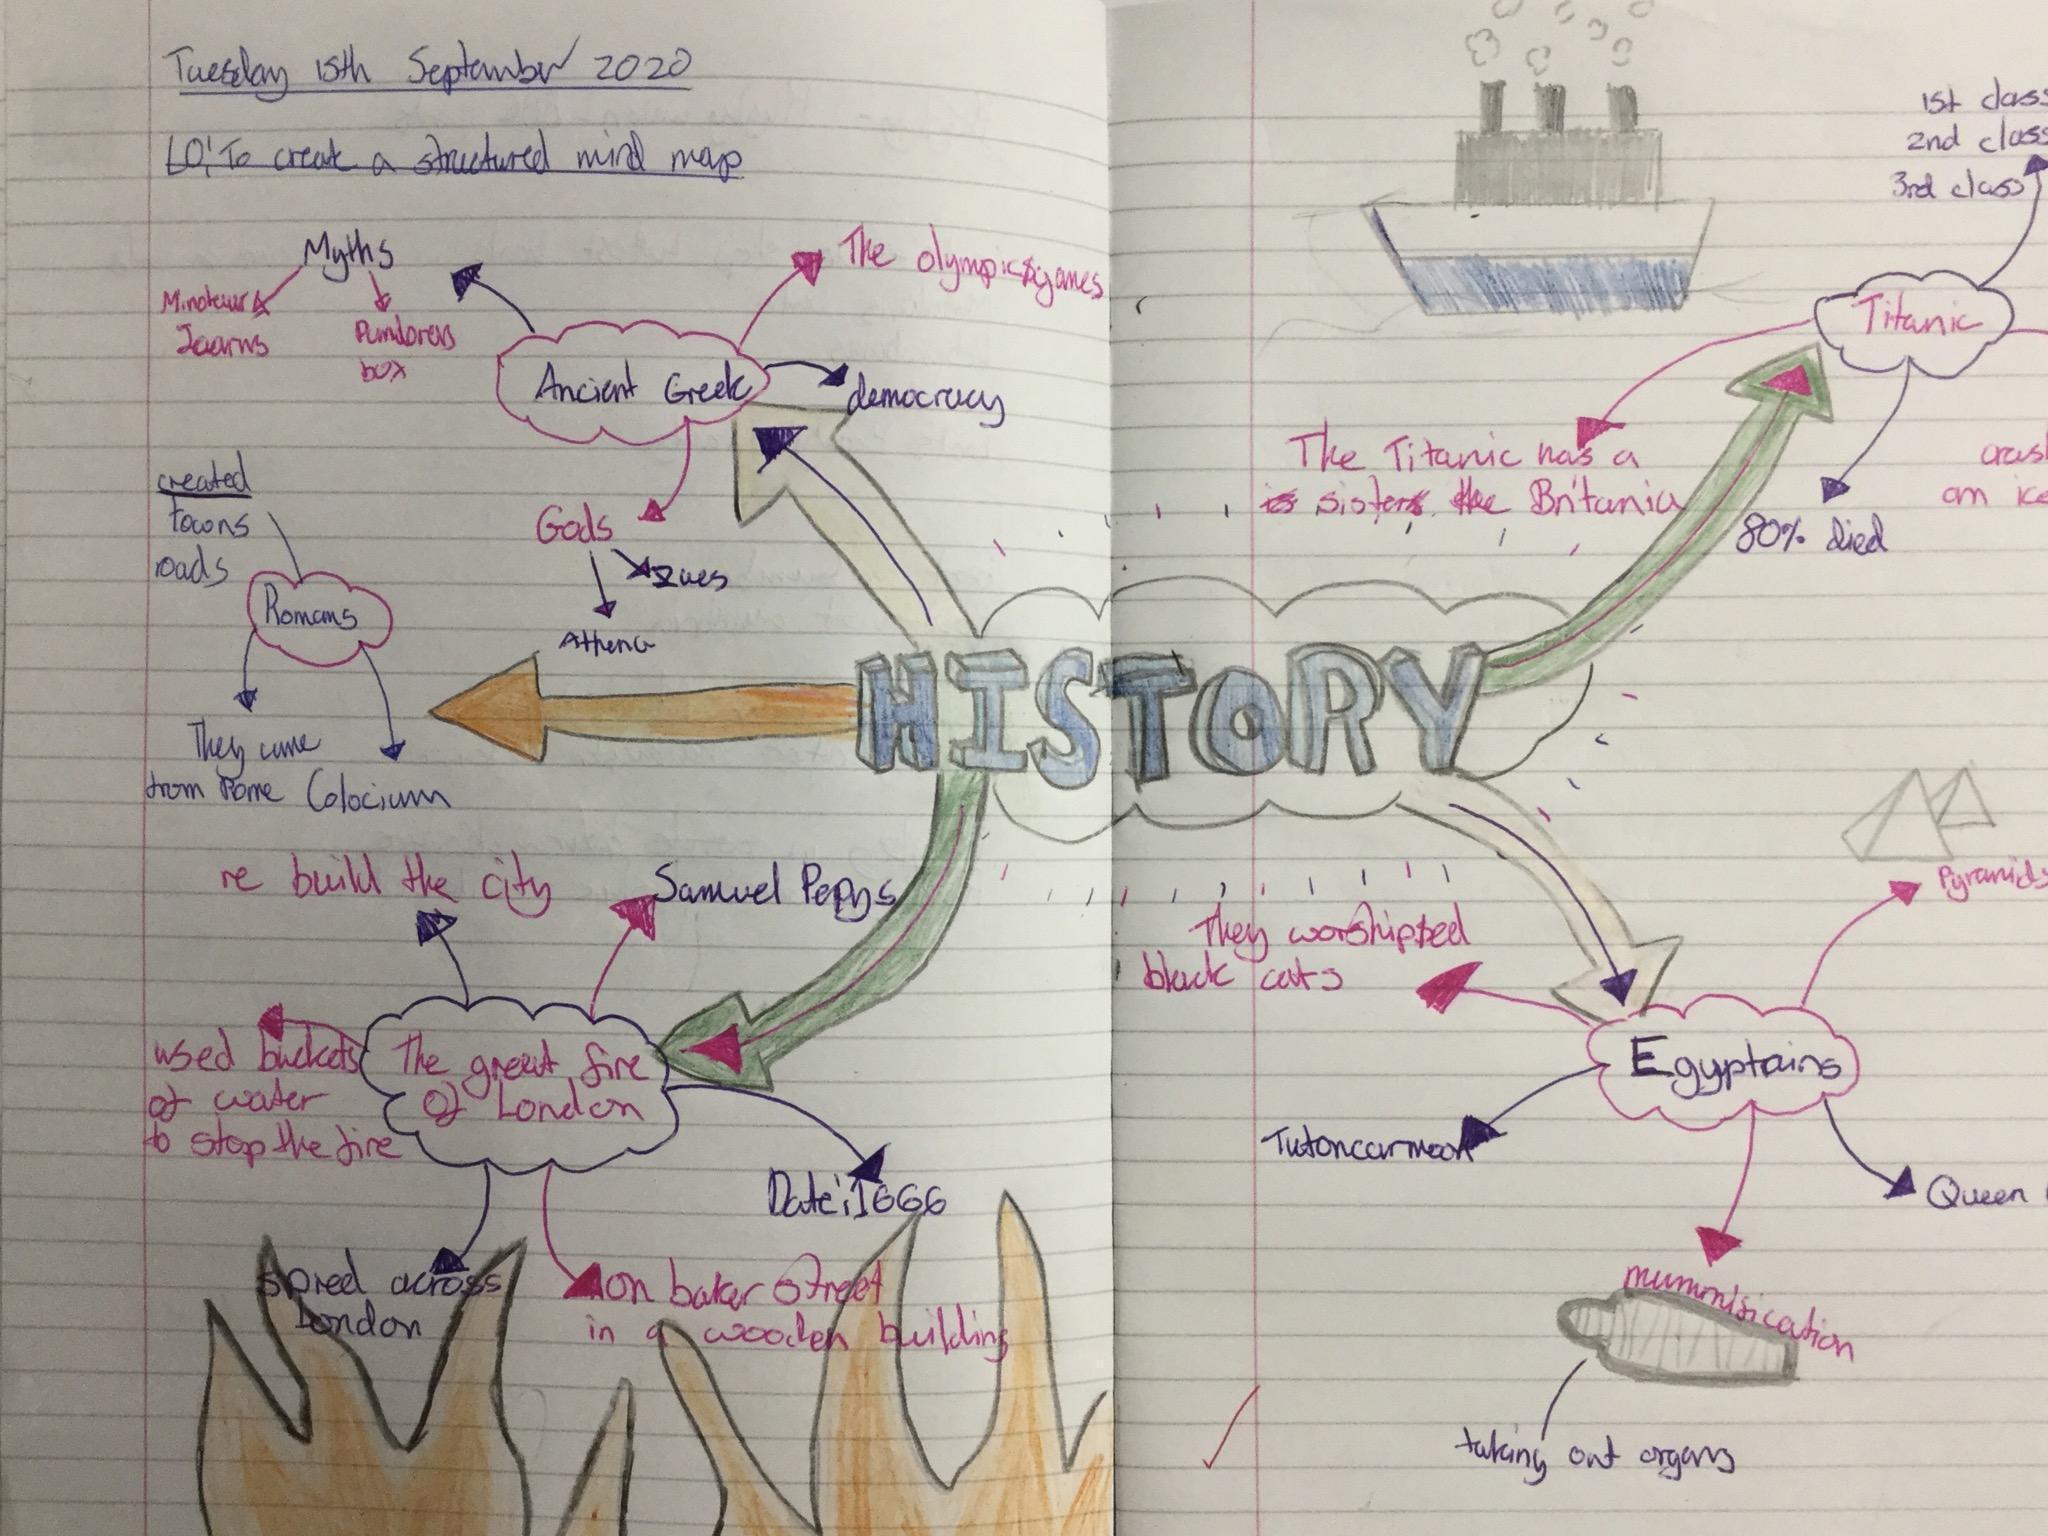 Tuesday 15th September 2020
LO: To create a structured mind map
Myths
Minotaur
Pundoras
box
The olympics games
Ancient Greek
democracy
Gods
Zues
Athena
created
towns
roads
Romans
They came
from Rome
Colocium
HISTORY
re build the city
Samuel Pepys
used buckets
of water
to stop the fire
The great fire
of London
Date: 1666
spred across
London
on baker street
in a wooden building
1st class
2nd class
3rd class
Titanic
The Titanic has a
is sister the Britania
80% died
crash
an ice
They worshipped
black cats
Pyramids
Egyptains
Tutoncarmoon
Queen
mummisication
taking out organs